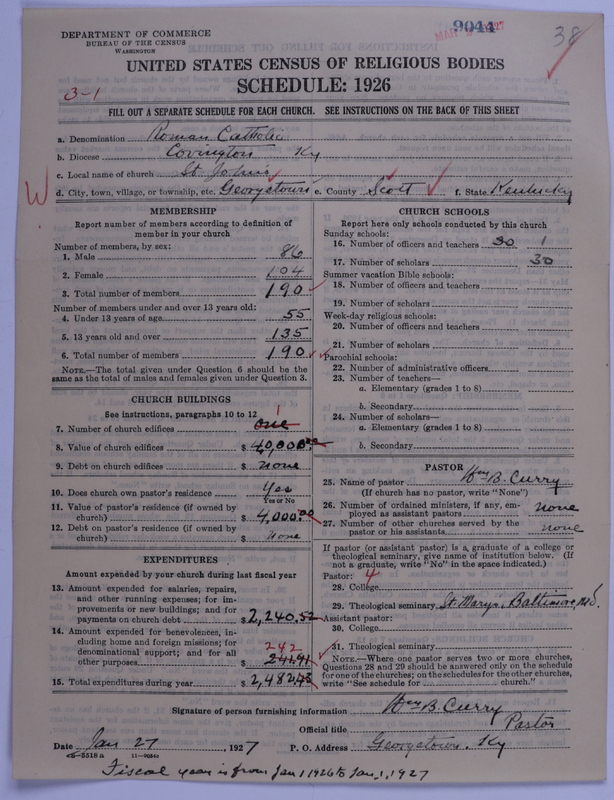 DEPARTMENT OF COMMERCE
BUREAU OF THE CENSUS
WASHINGTON
9044
38
UNITED STATES CENSUS OF RELIGIOUS BODIES
SCHEDULE: 1926
3-1
FILL OUT A SEPARATE SCHEDULE FOR EACH CHURCH. SEE INSTRUCTIONS ON THE BACK OF THIS SHEET
a. Denomination Roman Catholic
b. Diocese Covington Ky
c. Local name of church St. John's
W d. City, town, village, or township, etc. Georgetown e. County Scott f. State Kentucky
MEMBERSHIP
Report number of members according to definition of
member in your church
Number of members, by sex:
1. Male 86
2. Female 104
3. Total number of members 190
Number of members under and over 13 years old:
4. Under 13 years of age 55
5. 13 years old and over 135
6. Total number of members 190
NOTE.—The total given under Question 6 should be the
same as the total of males and females given under Question 3.
CHURCH BUILDINGS
See instructions, paragraphs 10 to 12
1
7. Number of church edifices one
8. Value of church edifices $ 40,000.00
9. Debt on church edifices $ none
10. Does church own pastor's residence Yes
Yes or No
11. Value of pastor's residence (if owned by
church) $ 4,000.00
12. Debt on pastor's residence (if owned by
church) $ none
EXPENDITURES
Amount expended by your church during last fiscal year
13. Amount expended for salaries, repairs,
and other running expenses; for im-
provements or new buildings; and for
payments on church debt $ 2,240.52
14. Amount expended for benevolences, in-
cluding home and foreign missions; for
denominational support; and for all
242
other purposes $ 241.91
15. Total expenditures during year $ 2,482.43
CHURCH SCHOOLS
Report here only schools conducted by this church
Sunday schools:
16. Number of officers and teachers 30 1
17. Number of scholars 30
Summer vacation Bible schools:
18. Number of officers and teachers
19. Number of scholars
Week-day religious schools:
20. Number of officers and teachers
21. Number of scholars
Parochial schools:
22. Number of administrative officers
23. Number of teachers—
a. Elementary (grades 1 to 8)
b. Secondary
24. Number of scholars—
a. Elementary (grades 1 to 8)
b. Secondary
PASTOR
25. Name of pastor Wm B. Curry
(If church has no pastor, write "None")
26. Number of ordained ministers, if any, em-
ployed as assistant pastors none
27. Number of other churches served by the
pastor or his assistants none
If pastor (or assistant pastor) is a graduate of a college or
theological seminary, give name of institution below. (If
not a graduate, write "No" in the space indicated.)
Pastor: 4
28. College
29. Theological seminary St. Mary's, Baltimore, Md.
Assistant pastor:
30. College
31. Theological seminary
NOTE.—Where one pastor serves two or more churches,
Questions 28 and 29 should be answered only on the schedule
for one of the churches; on the schedules for the other churches,
write "See schedule for church."
Signature of person furnishing information Wm B. Curry
Official title Pastor
Date Jan 27, 1927 P. O. Address Georgetown, Ky
11-9044
Fiscal year is from Jan 1 1926 to Jan, 1, 1927